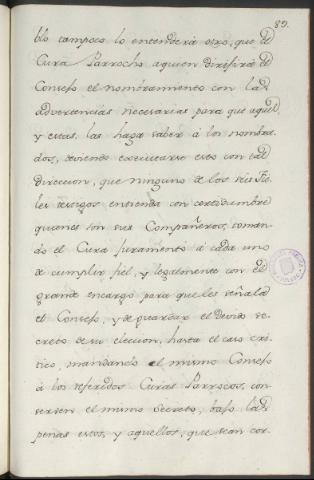 89.
blo tampoco lo entenderá otro, que el
Cura Parrocho aquien dirijirá el
Consejo el nombramiento con las
advertencias necesarias para que aquel
y estas, las haga saber á los nombra-
dos, deviendo executarse esto con tal
direccion, que ninguno de los seis Fie-
les testigos entienda con certidumbre
quienes son sus Compañeros, toman-
do el Cura juramento á cada uno
de cumplir fiel, y legalmente con el
grande encargo para que les señala
el Consejo, y de guardar el devido se-
creto de su eleccion, hasta el caso cri-
tico, mandando el mismo Consejo
á los referidos Curas Parrocos, con-
serven el mismo secreto, bajo las
penas estos, y aquellos, que sean cor-